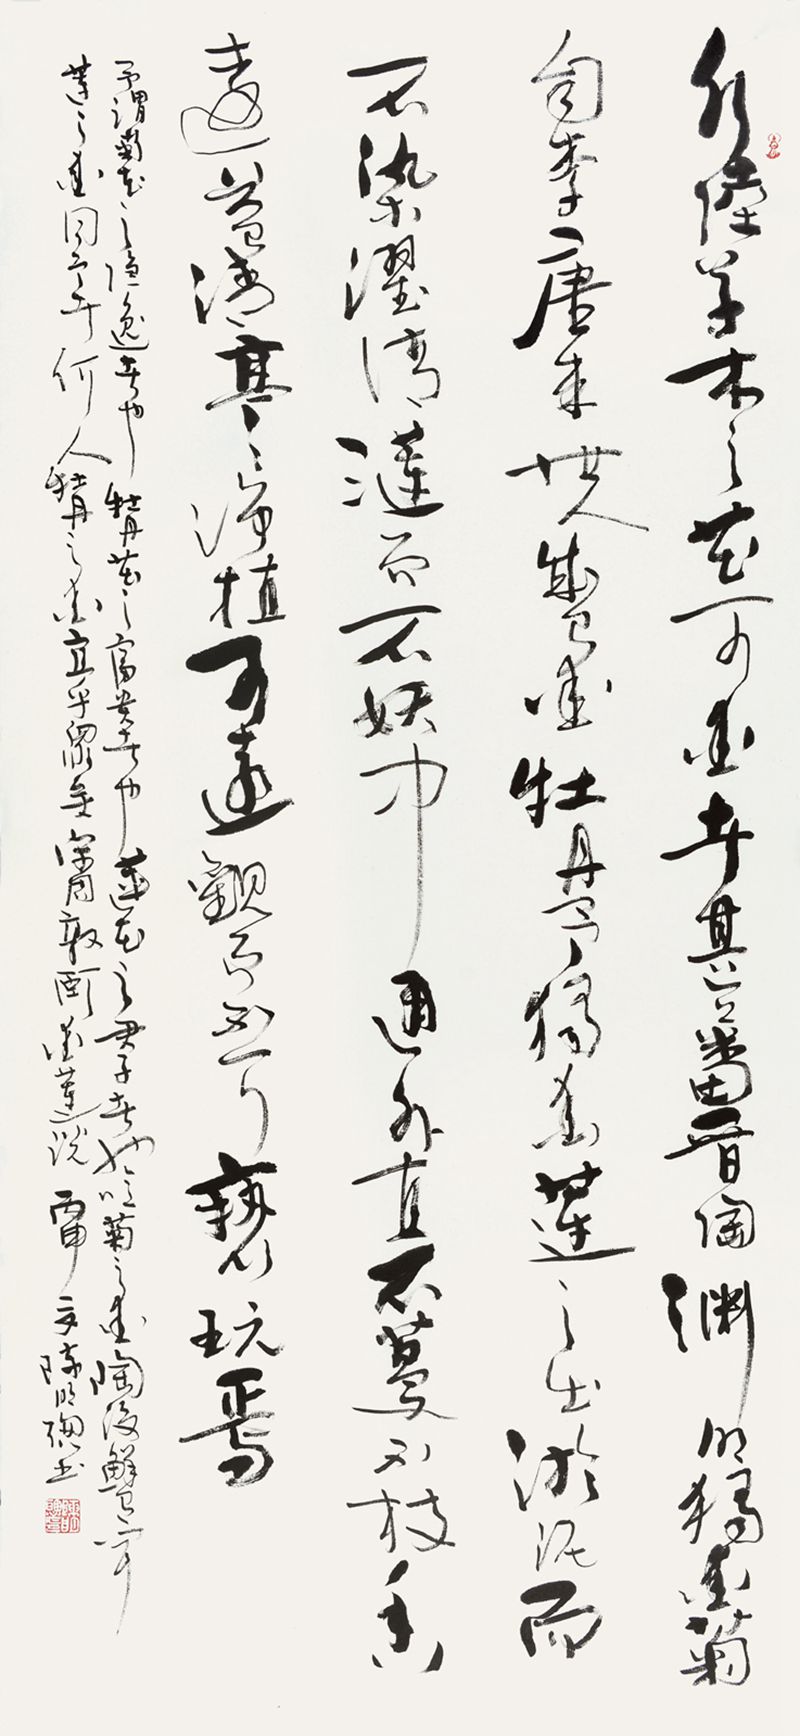 水陸草木之花可愛者甚蕃晉陶淵明獨愛菊
自李唐来世人盛愛牡丹予獨愛蓮之出淤泥而
不染濯清漣而不妖中通外直不蔓不枝香
遠益清亭亭淨植可遠觀而不可褻玩焉
予謂菊花之隱逸者也牡丹花之富貴者也蓮花之君子者也噫菊之愛陶後鮮有聞
蓮之愛同予者何人牡丹之愛宜乎眾矣宋周敦頤愛蓮説丙申陳明書